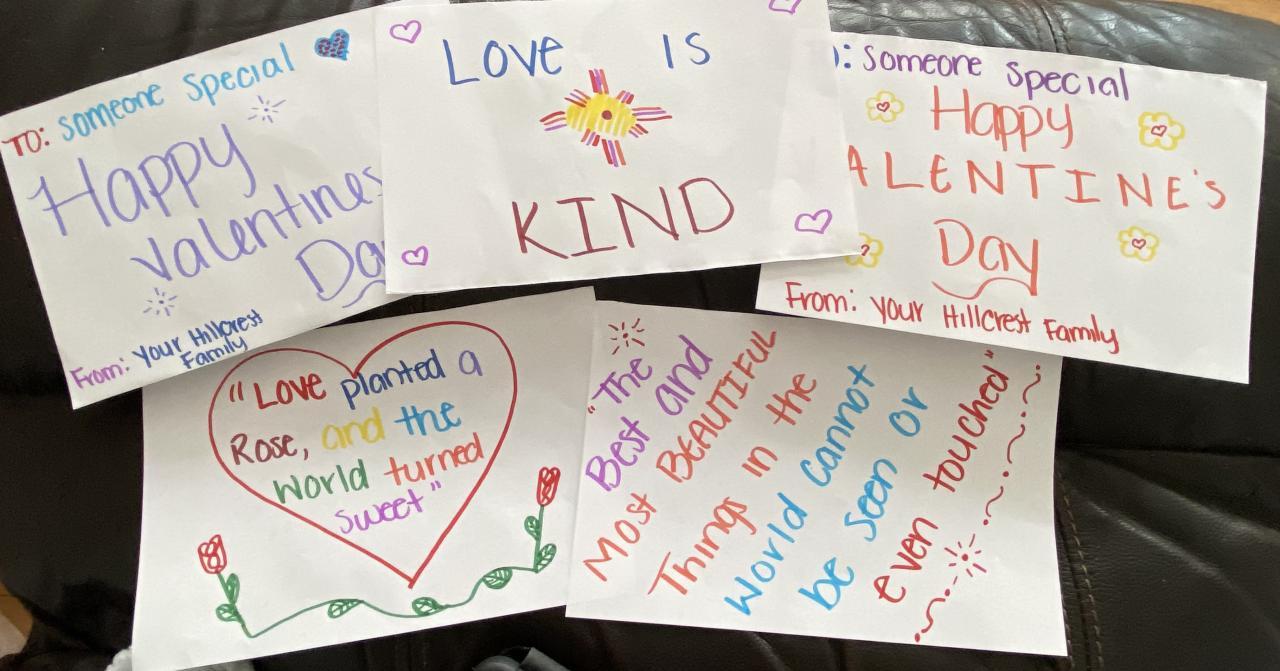 TO: Someone Special
Happy
Valentines
Da
From: Your Hillcrest
Family
LOVE IS
KIND
: Someone Special
Happy
ALENTINE'S
Day
From: Your Hillcrest Family
"Love planted a
Rose, and the
World turned
sweet"
"The
Best and
Most BEAUTIFUL
Things in the
World cannot
be seen or
even touched"